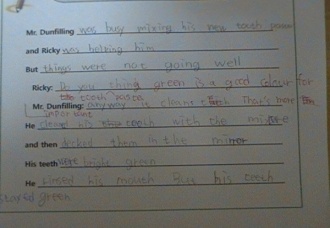 Mr. Dunfilling was busy mixing his new tooth
and Ricky was helping him
But things were not going well
Ricky: Do you thing green is a good colour for
tooth pasta
Mr. Dunfilling: anyway it cleans That's
important
He his teeth with the
and then them in the mirror
His teeth were bright green
He his mouth But his teeth
green